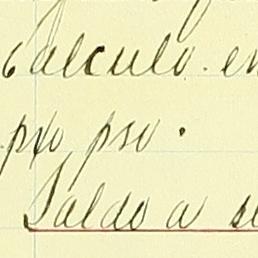 Calculo. en
pxo pso.
Saldo a su